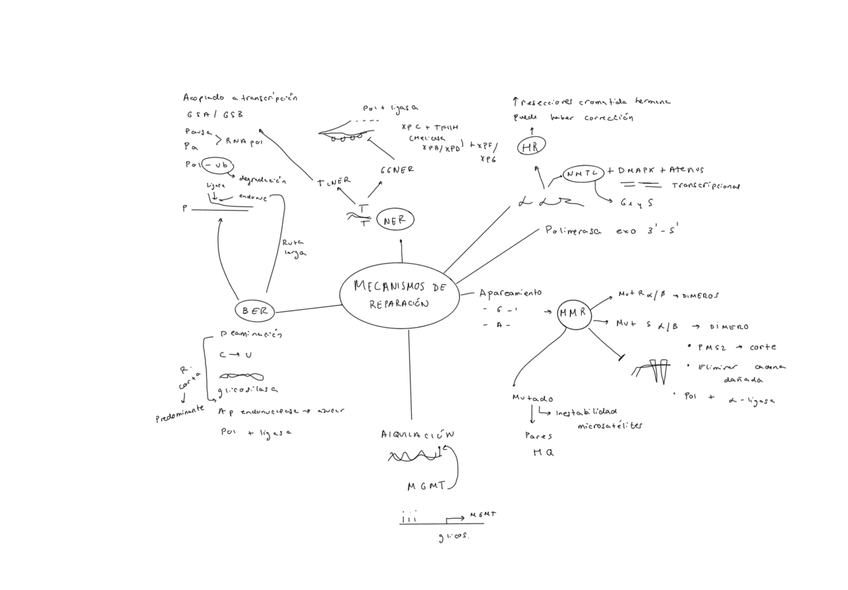 MECANISMOS DE
REPARACIÓN
Acoplado a transcripción
CSA / CSB
Pausa
Pa
> RNA pol
Pol - ub
→ degradación
ligasa
P
Ruta
larga
BER
Deaminación
C → U
glicosilasa
AP endonucleasa → azúcar
Pol + ligasa
R.
corta
Predominante
Pol + ligasa
XPC + TFIIH
(Helicasa
XPB/XPD) + XPF/
XPG
GGNER
TCNER
T
T
NER
↑ resecciones cromatida
Puede haber corrección
HR
+ DNAPK +
transcripcional
G1 y S
Polimerasa exo 3' - 5'
Apareamiento
- G -
- A -
MMR
→ DIMEROS
Mut S α/β → DIMERO
• PMS2 → corte
• Eliminar cadena
dañada
• Pol + α-ligasa
Mutado
Inestabilidad
microsatélites
Pares
ALQUILACIÓN
MGMT
iii
MGMT